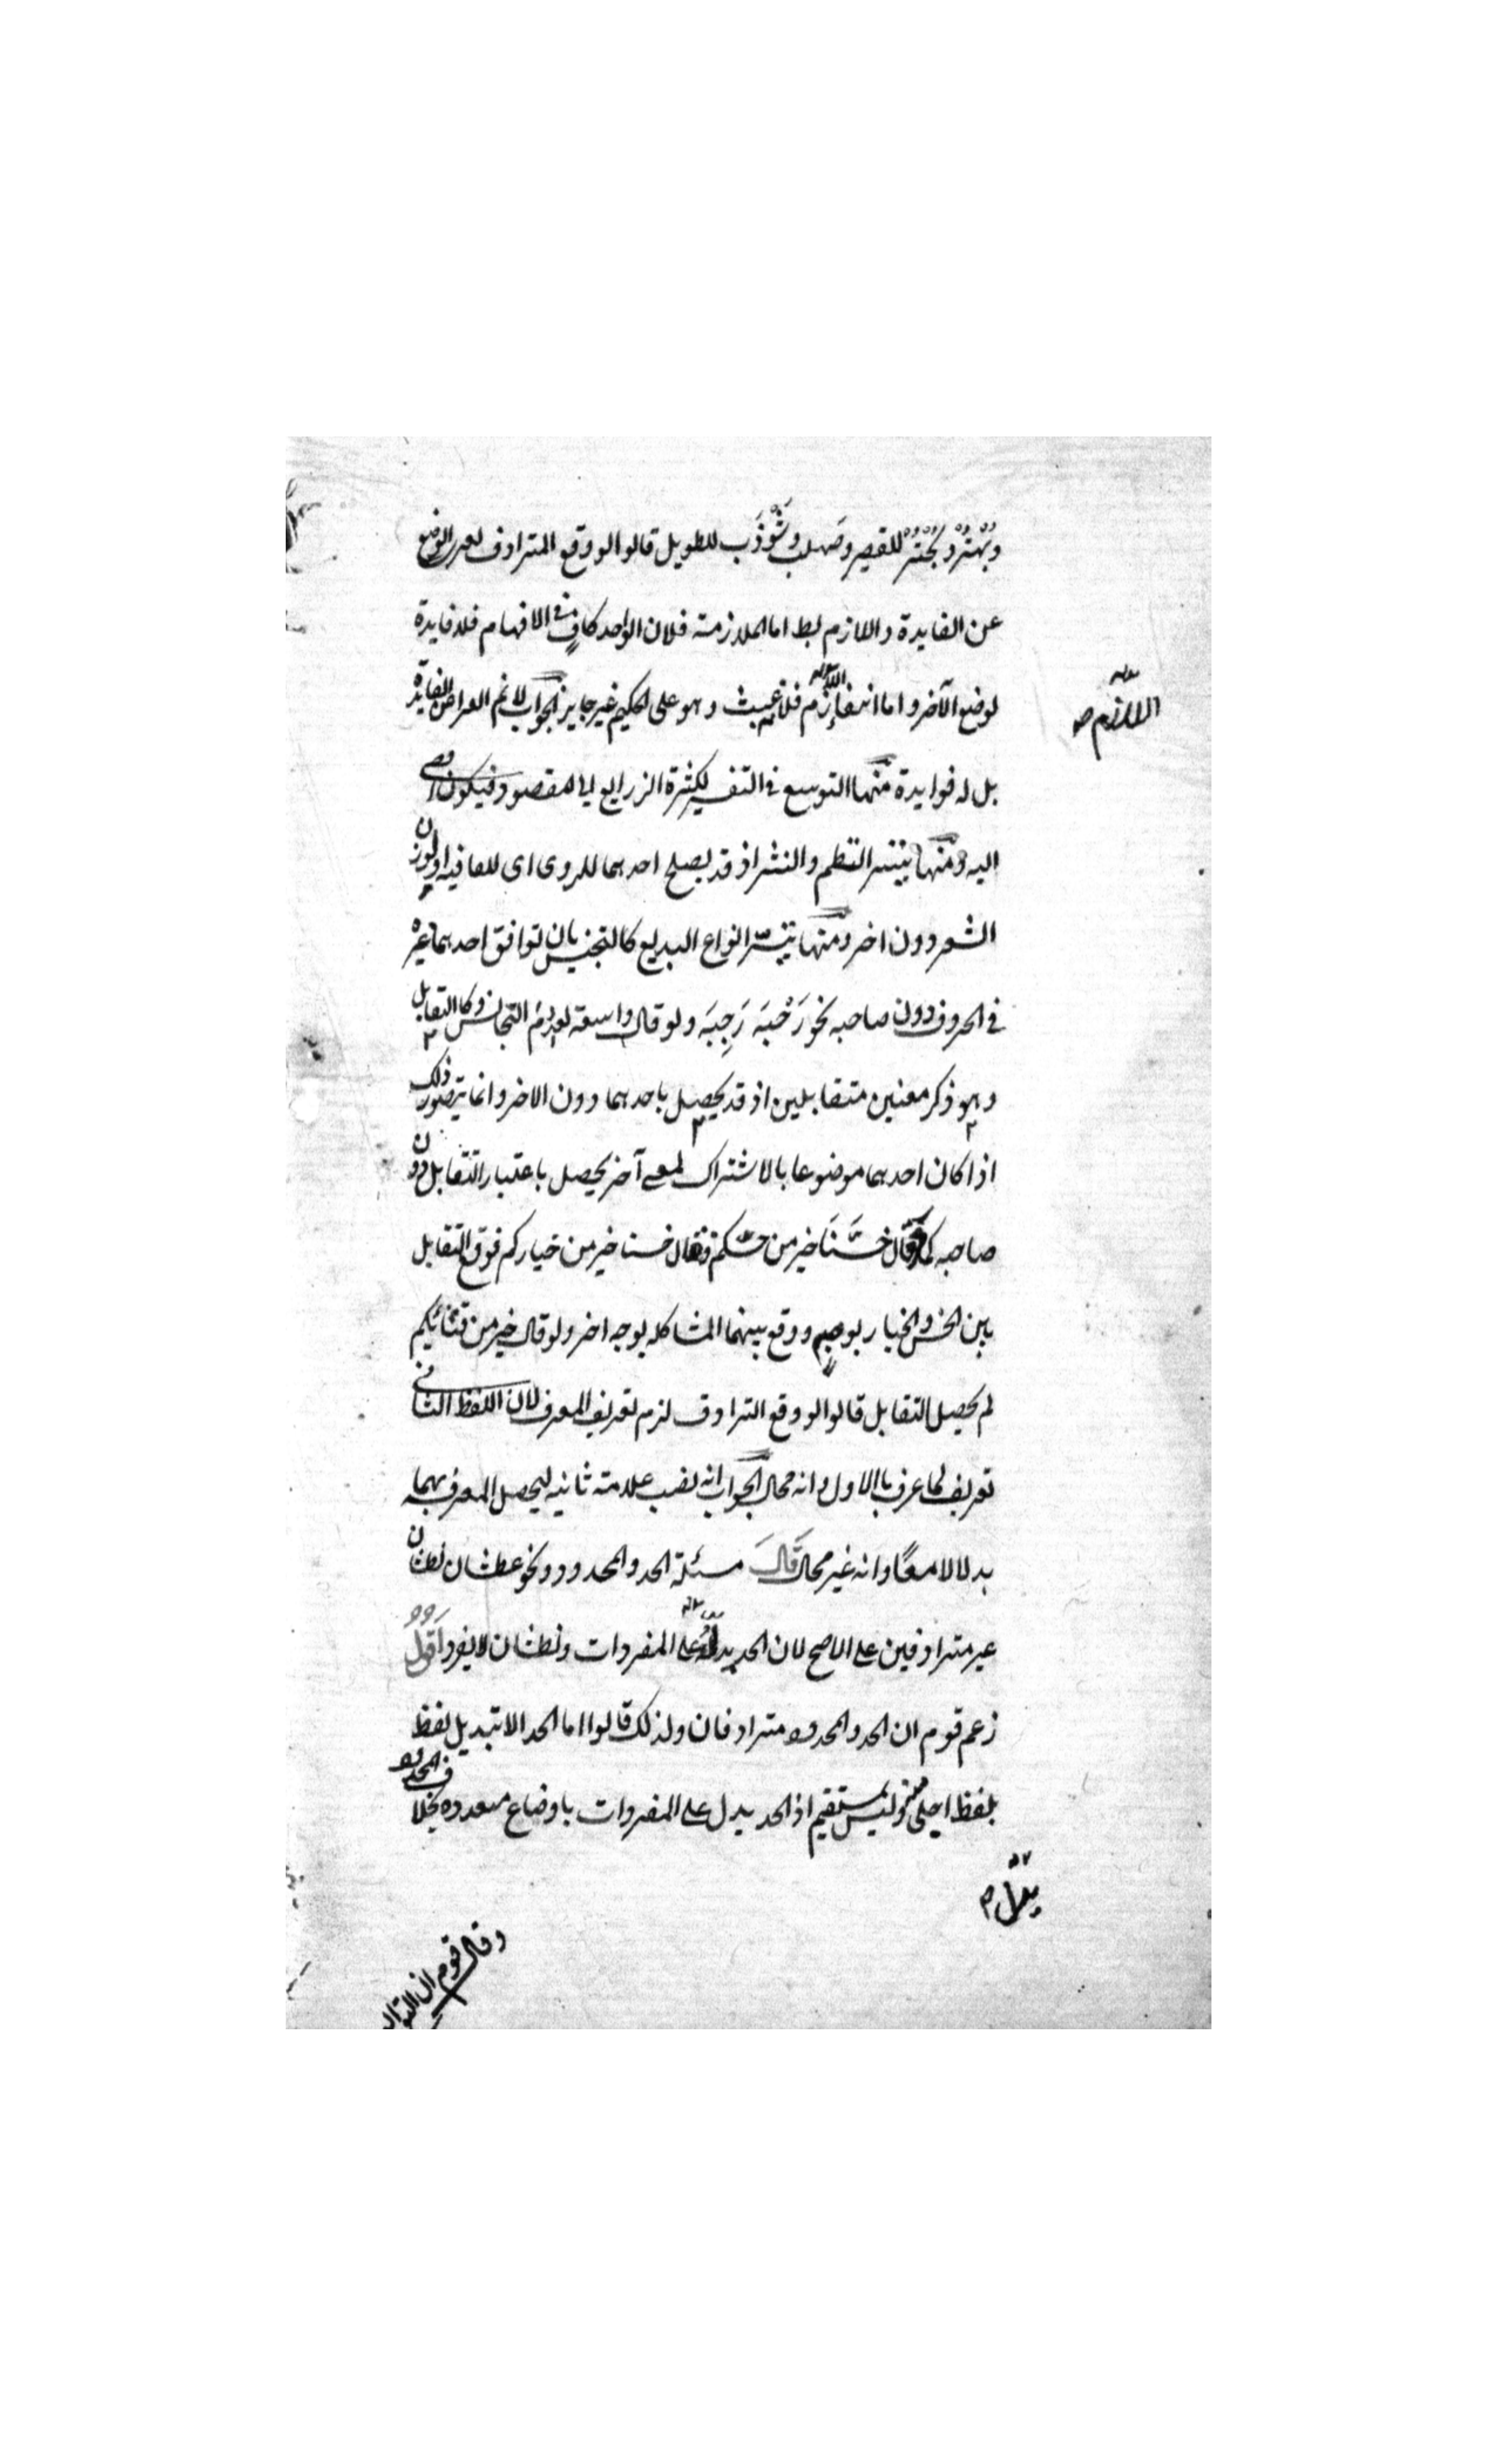 وبُهْتُر وبُحْتُر للقصير وصهلب وشَوْذَب للطويل قالوا لو وقع المترادف لعرى الوضع
عن الفايدة واللازم بط اما الملازمة فلان الواحد كافٍ في الافهام فلا فايدة
لوضع الآخر واما انتفاء اللازم فلانه عبث وهو على الحكيم غير جايز الجواب لا نم العراء عن الفايدة
اللازم صح
بل له فوايد منها التوسع في التعبير لكثرة الذرايع الى المقصود فيكون افضى
اليه ومنها تيسر النظم والنثر اذ قد يصلح احدهما للروى اى للقافية او لوزن
الشعر دون اخر ومنها تيسّر انواع البديع كالتجنيس بان توافق احدهما غيره
في الحروف دون صاحبه نحو رَحْبَة رَحِبَة ولو قال واسعة لعدم التجانس وكالتقابل
وهو ذكر معنين متقابلين اذ قد يحصل باحدهما دون الاخر وانما يتصور ذلك
اذا كان احدهما موضوعا بالاشتراك لمعنى آخر يحصل باعتباره التقابل دون
صاحبه كما قال خسّنا خير من خسكم فقال خسنا خير من خياركم فوقع التقابل
بين الخس والخيار بوجهٍ ووقع بينهما المشاكله بوجه اخر ولو قال خير من قثائكم
لم يحصل التقابل قالوا لو وقع الترادف لزم تعريف المعرف لان اللفظ الثانى
تعريف لما عرف بالاول وانه محال الجواب انه نصب علامة ثانيه ليحصل المعرفه بهما
بدلا لا معًا وانه غير محال قَالَ مسئلة الحد والمحدود ونحو عطشان نطشان
غير مترادفين على الاصح لان الحد يدل على المفردات ونطشان لا يفرد اَقُولُ
زعم قوم ان الحد والمحدود مترادفان ولذلك قالوا ما الحد الا تبديل لفظ
بلفظ اجلى منه وليس بمستقيم اذ الحد يدل على المفردات باوضاع متعدده بخلاف المحدود
يدل م
وقال قوم ان التوا